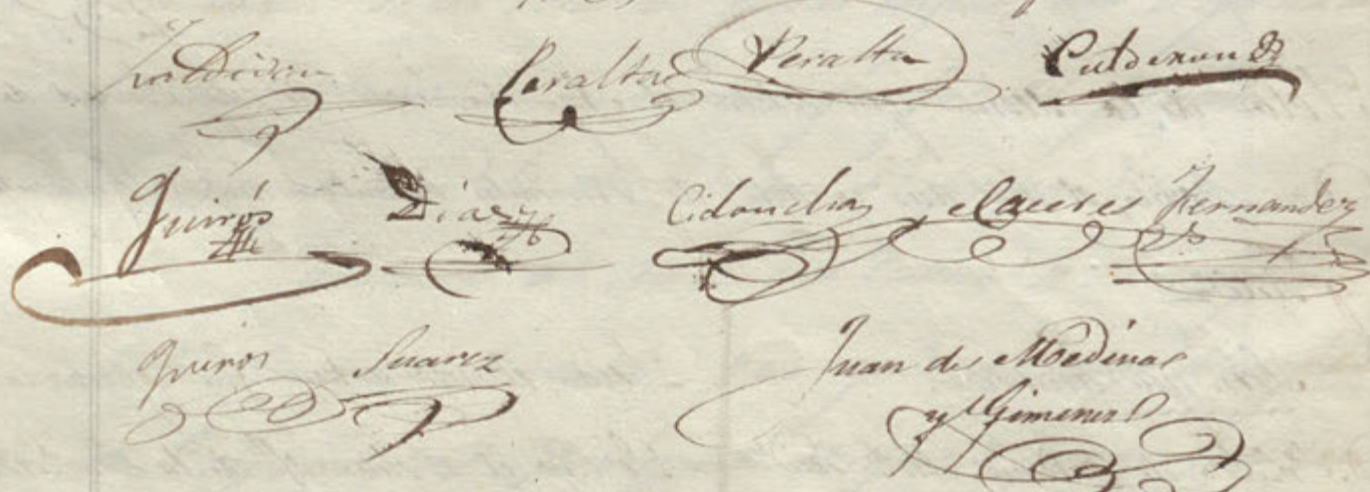 Peralta Peralta Calderon
Quirós Diaz Cidoncha Caceres Fernandez
Quiros Suarez Juan de Medina
y Gimenez